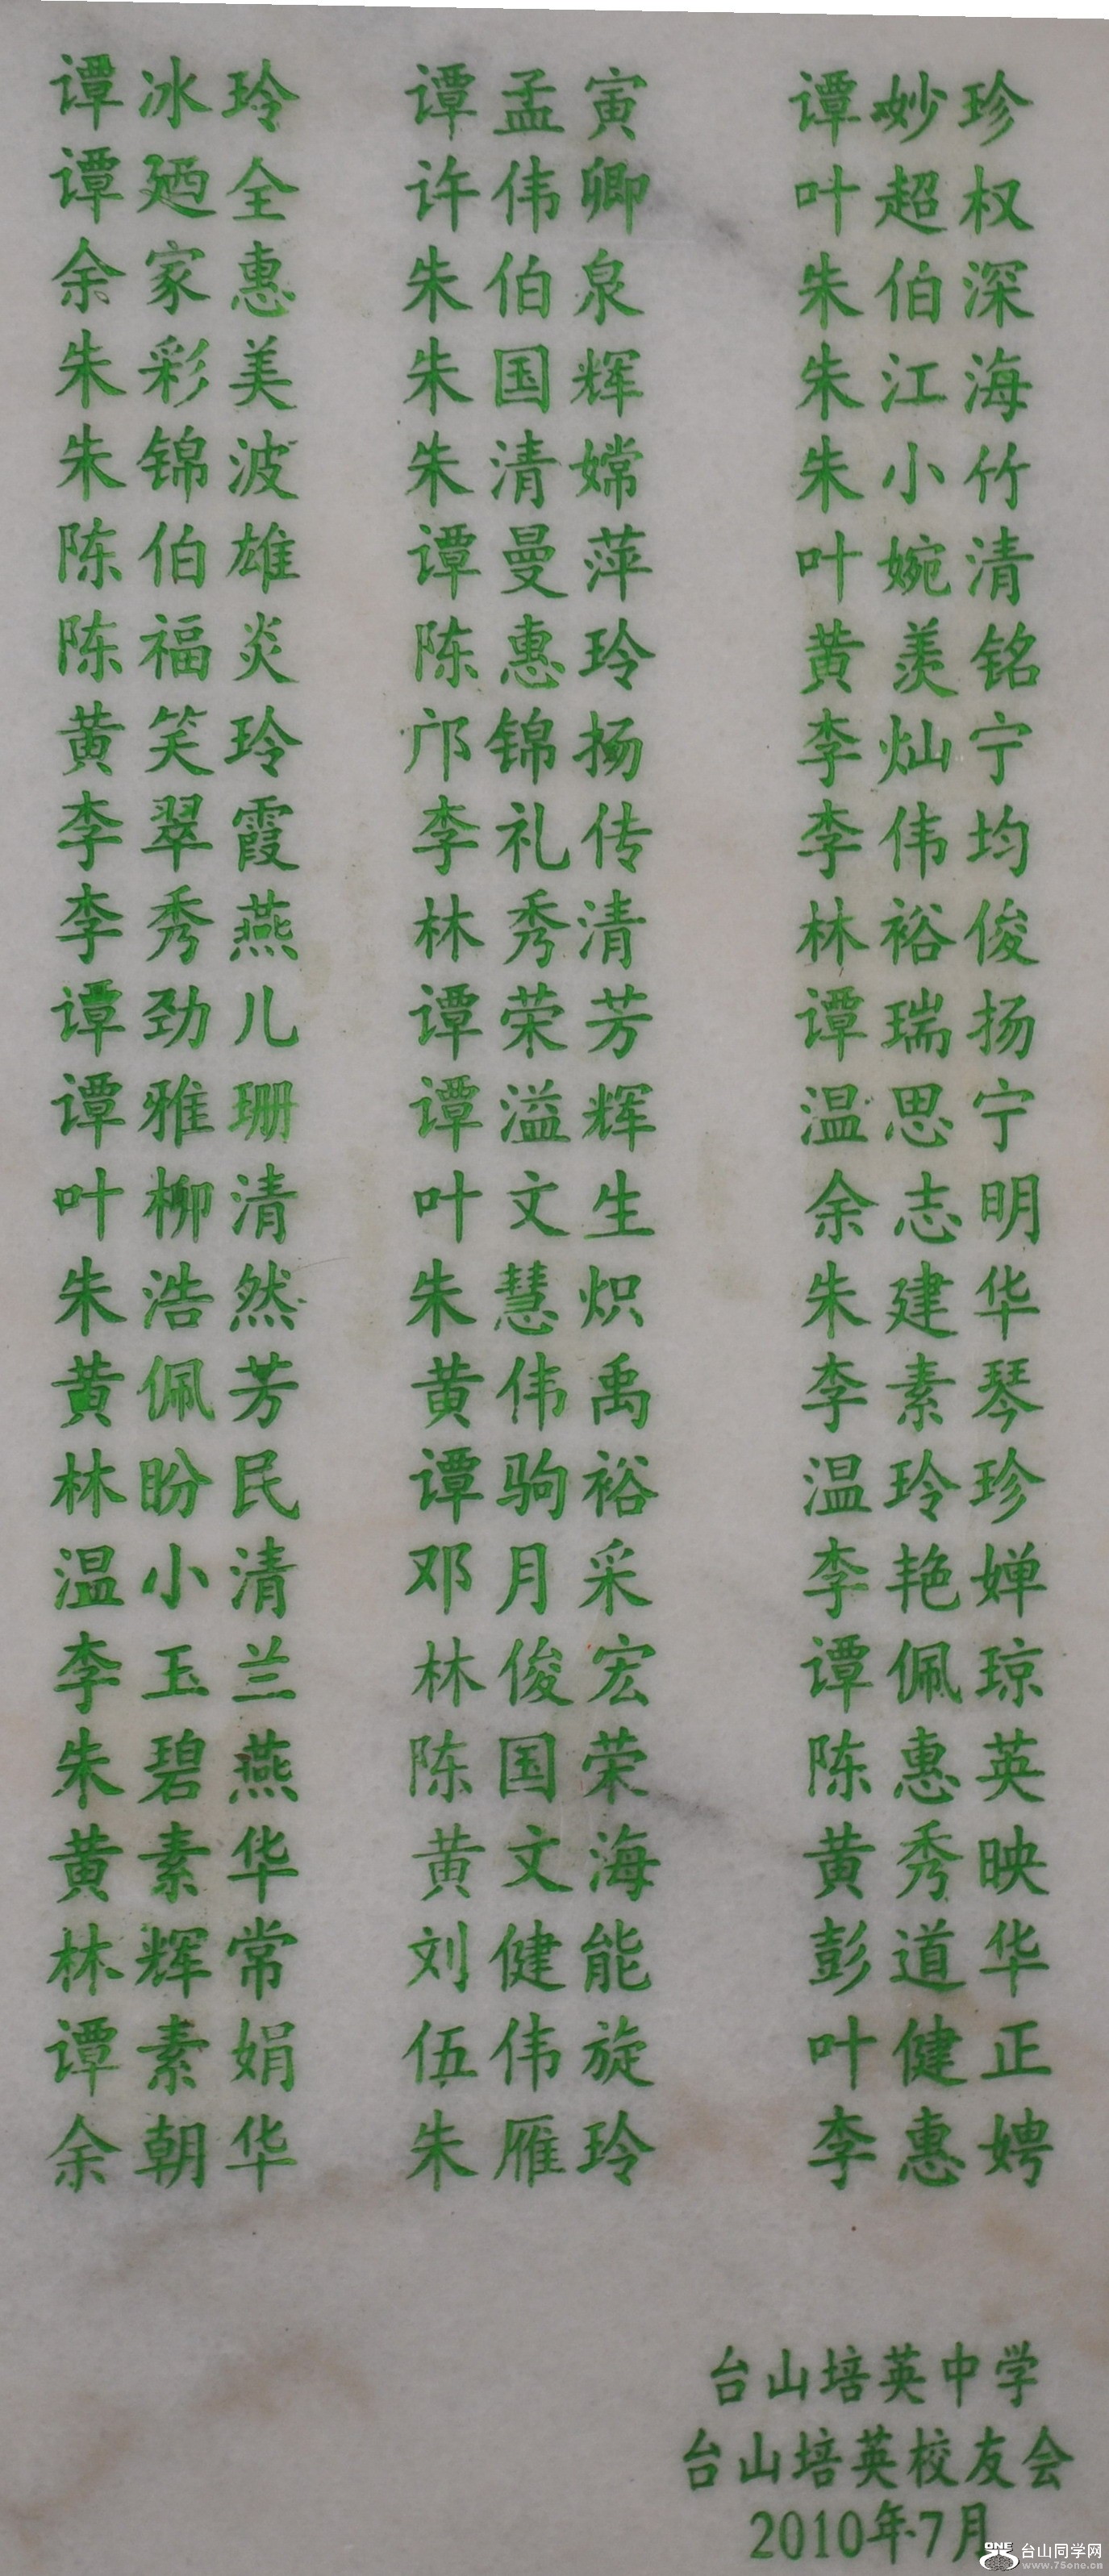 谭冰玲 谭孟寅 谭妙珍
谭廼全 许伟卿 叶超权
余家惠 朱伯泉 朱伯深
朱彩美 朱国辉 朱江海
朱锦波 朱清嫦 朱小竹
陈伯雄 谭曼萍 叶婉清
陈福炎 陈惠玲 黄羡铭
黄笑玲 邝锦扬 李灿宁
李翠霞 李礼传 李伟均
李秀燕 林秀清 林裕俊
谭劲儿 谭荣芳 谭瑞扬
谭雅珊 谭溢辉 温思宁
叶柳清 叶文生 余志明
朱浩然 朱慧炽 朱建华
黄佩芳 黄伟禹 李素琴
林盼民 谭驹裕 温玲珍
温小清 邓月采 李艳婵
李玉兰 林俊宏 谭佩琼
朱碧燕 陈国荣 陈惠英
黄素华 黄文海 黄秀映
林辉常 刘健能 彭道华
谭素娟 伍伟旋 叶健正
余朝华 朱雁玲 李惠娉
台山培英中学
台山培英校友会
2010年7月
ONE 台山同学网
www.75one.cn